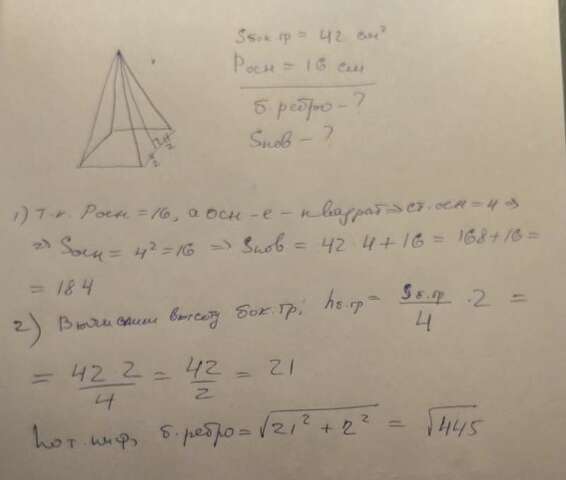 Sбок.гр = 42 см²
Pосн = 16 см
б.ребро - ?
Sпов - ?
2 4
2
2
1) т.к. Pосн = 16, а осн-е - квадрат ⇒ ст.осн = 4 ⇒
⇒ Sосн = 4² = 16 ⇒ Sпов = 42 · 4 + 16 = 168 + 16 =
= 184
2) Вычислим высоту бок.гр; hб.гр = Sб.гр/4 · 2 =
= 42 · 2/4 = 42/2 = 21
По т. пиф, б.ребро = √21² + 2² = √445